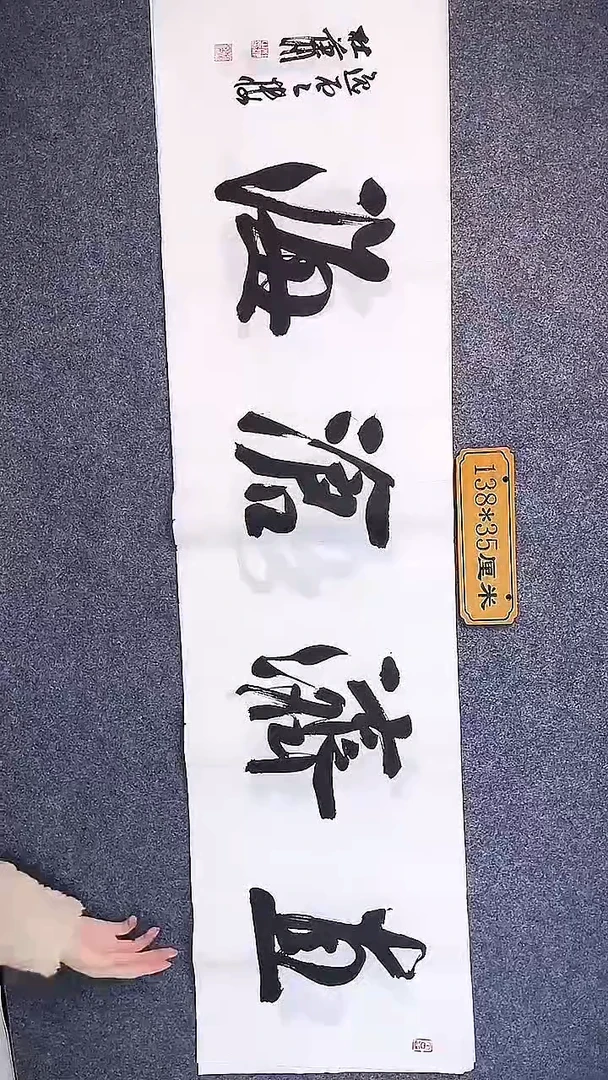 直濟滄海
138*35厘米